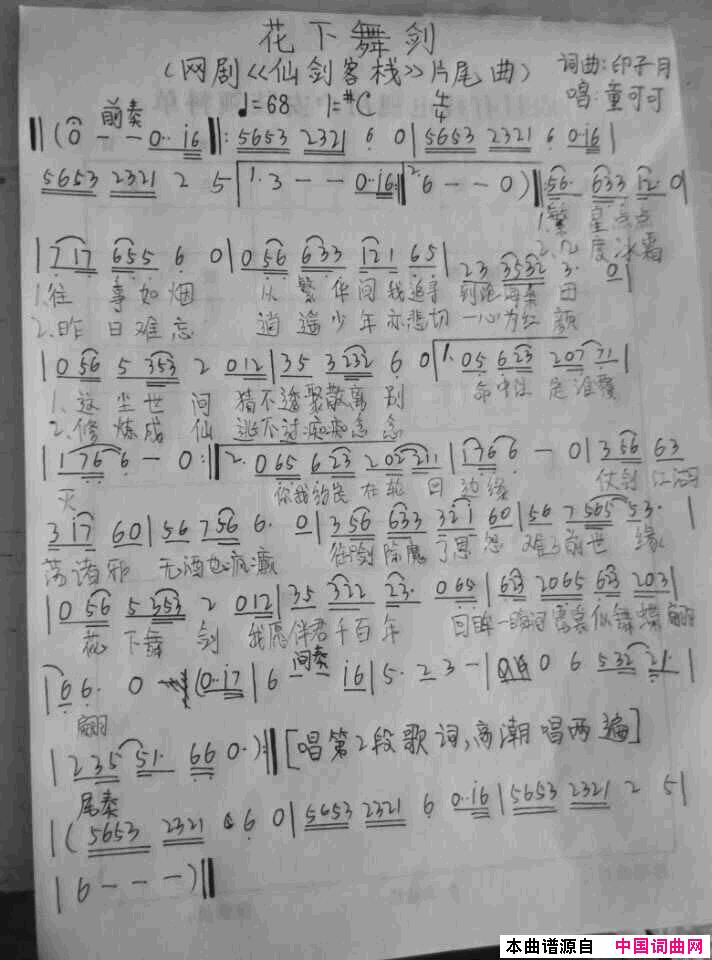 花下舞剑
(网剧《仙剑客栈》片尾曲) 词曲:印子月
♩=68 1=#C 4/4 唱:童可可
前奏
‖(0 - - 0·· i6‖: 5653 2321 6 0|5653 2321 6 0·i6|
5653 2321 2 5|1. 3 - - 0·i6:‖2. 6 - - 0)‖:56· 633 i2· 0
1.繁星点点
2.几度冰霜
|7i7 655 6 0|0 56 633 i2i 65|23 3532 3· 0|
1.往事如烟 从繁华间我追寻到
2.昨日难忘 逍遥少年亦悲切一心为红颜
|0 56 5 353 2 012|35 3232 6 0|1. 05 623 207 71|
1.这尘世间 猜不透聚散离别 命中注定谁
2.修炼成仙 逃不过痴痴念念
|176 6 - 0:‖2. 065 623 202 211|176 6 - 0|3 56 63
灭 你我 在轮回边缘 仗剑江湖
3 i7 60|56 756 6· 0|3 56 633 32i 60|56 7 565 53·|
荡诸邪 无酒也疯癫 御剑除魔了恩怨 难了前世缘
|0 56 5 353 2 012|35 322 23· 065|623 2065 623 203|
花下舞剑 我愿伴君千百年 回眸一瞬间 霓裳似舞蝶翩
|66· 0 (0·i7|6 间奏 i6|5· 2 3 -| 0 6 532 21·|
翩
|235 51· 66 0·):‖[唱第2段歌词,高潮唱两遍]
尾奏
|(5653 2321 6 0|5653 2321 6 0·i6|5653 2321 2 5|
|6 - - -)‖
本曲谱源自 中国词曲网